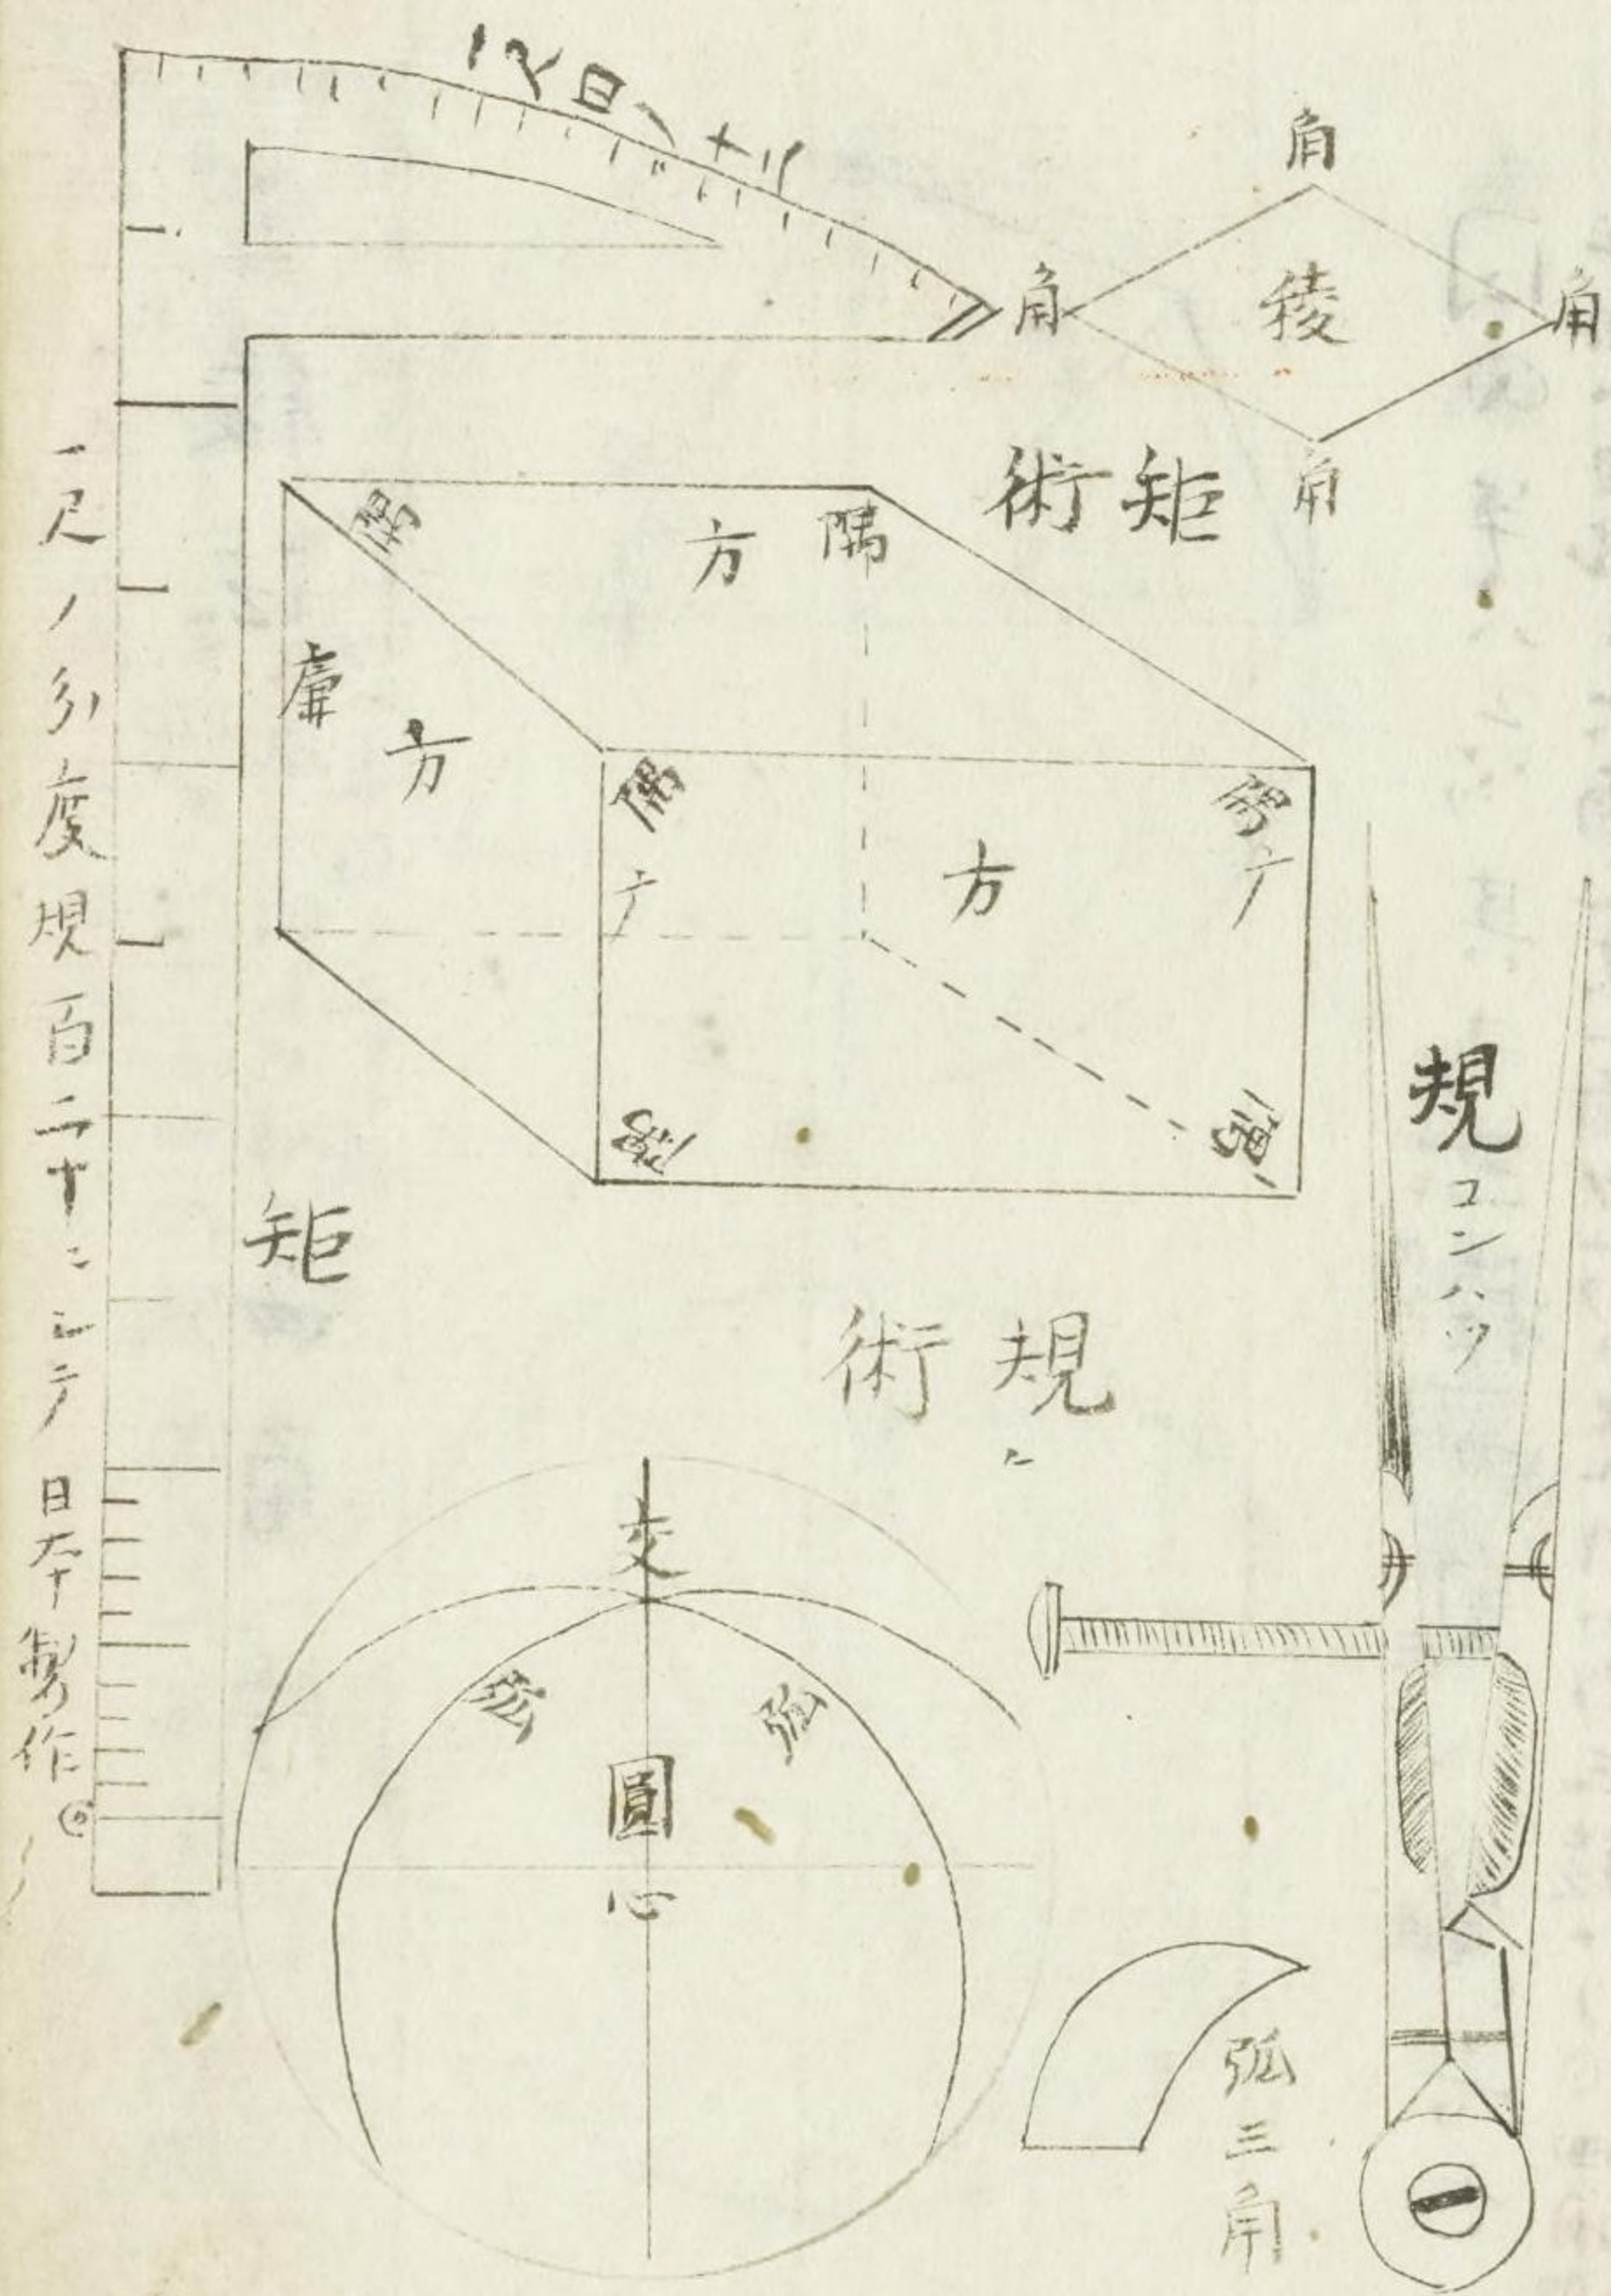 角
角
稜
角
角
術矩
方
隅
隅
方
隅
隅
方
隅
隅
規
コンハツ
矩
術規
交
弧
弧
圓
心
弧三角
一尺ノ引度規百二十ニシテ日本製作